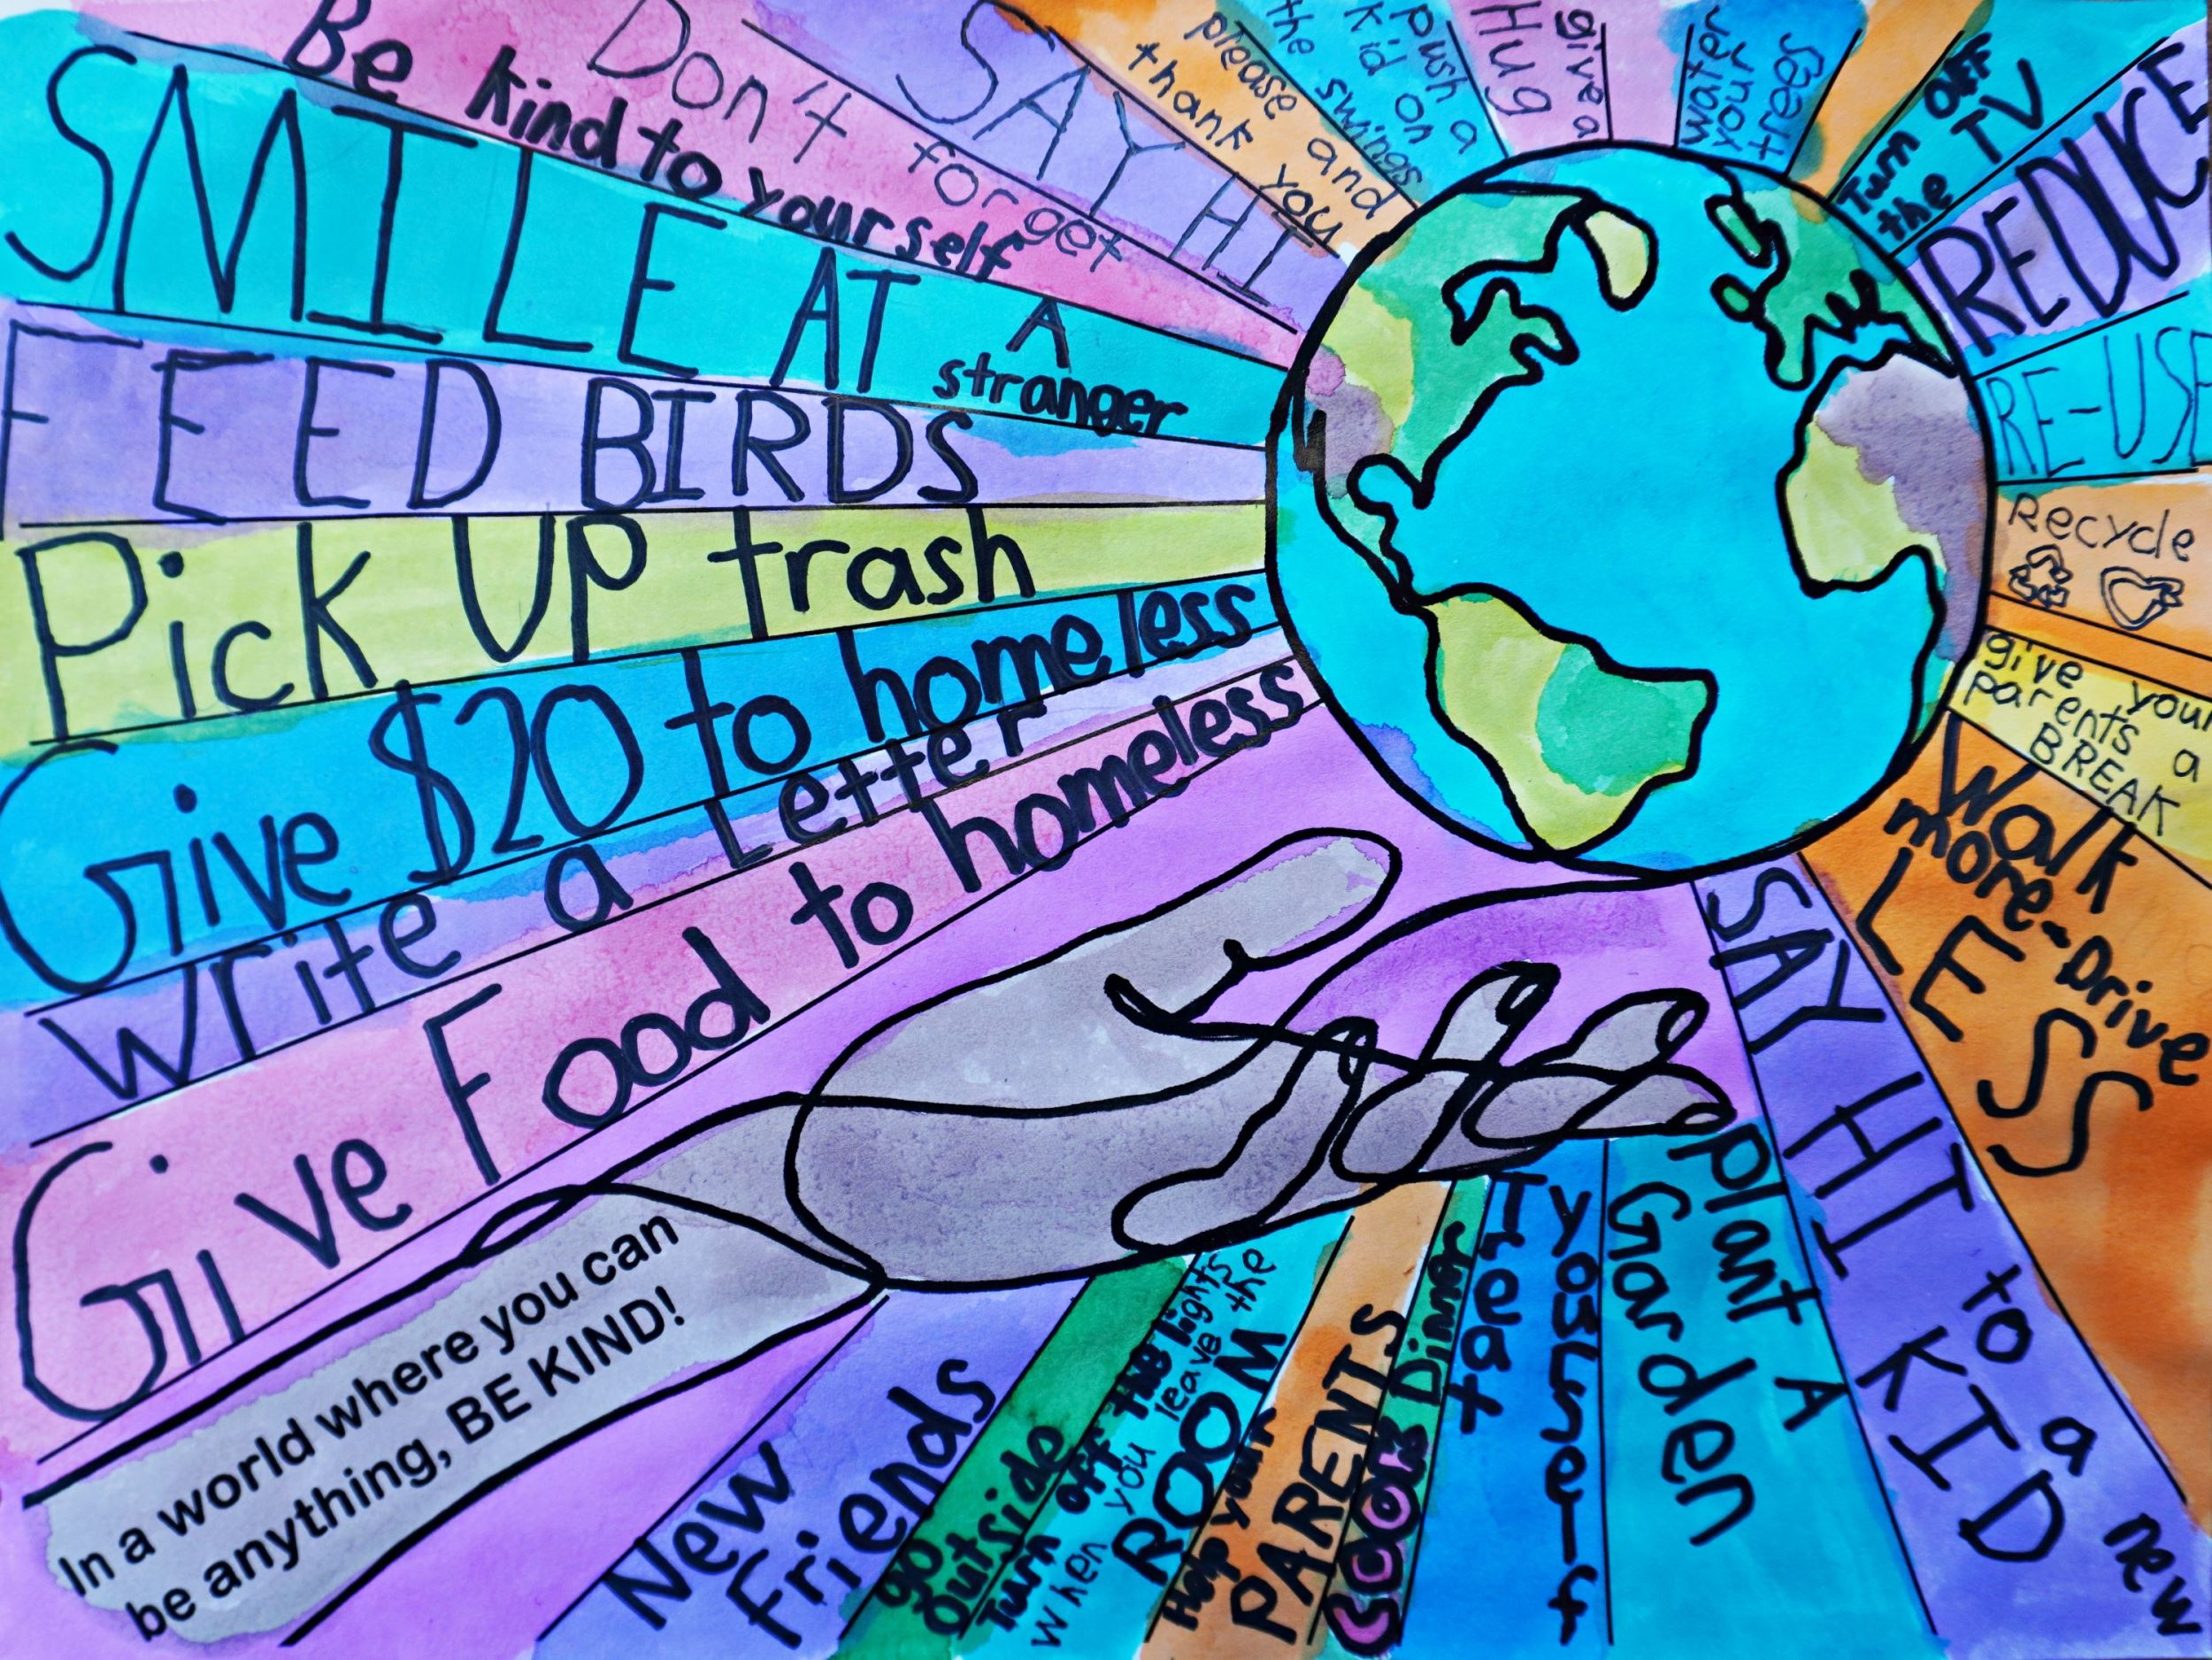 Be kind to yourself
Don't forget
SAY HI
please and
thank you
push a
kid on
the swings
give a
Hug
water
your
trees
Turn OFF
the TV
REDUCE
RE-USE
Recycle
give your
parents a
BREAK
Walk
more-Drive
LESS
SMILE AT A
stranger
FEED BIRDS
Pick UP trash
Give $20 to homeless
write a Letter
Give Food to homeless
In a world where you can
be anything, BE KIND!
New
Friends
go
outside
Turn off the lights
when you leave the
ROOM
Help your
PARENTS
COOK Dinner
Treat
yourself
plant A
Garden
SAY HI to a new
KID